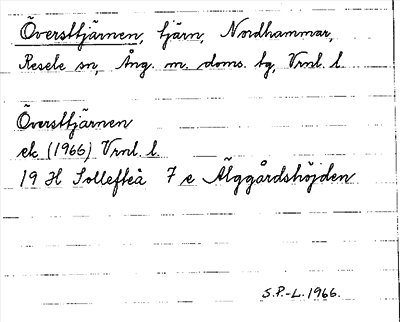 Översttjärnen, tjärn, Nordhammar,
Resele sn, Ång. m. doms. tg, Vrnl. l.
Översttjärnen
ek (1966) Vrnl. l.
19 H Sollefteå 7 e Älggårdshöjden
S.P.-L. 1966.